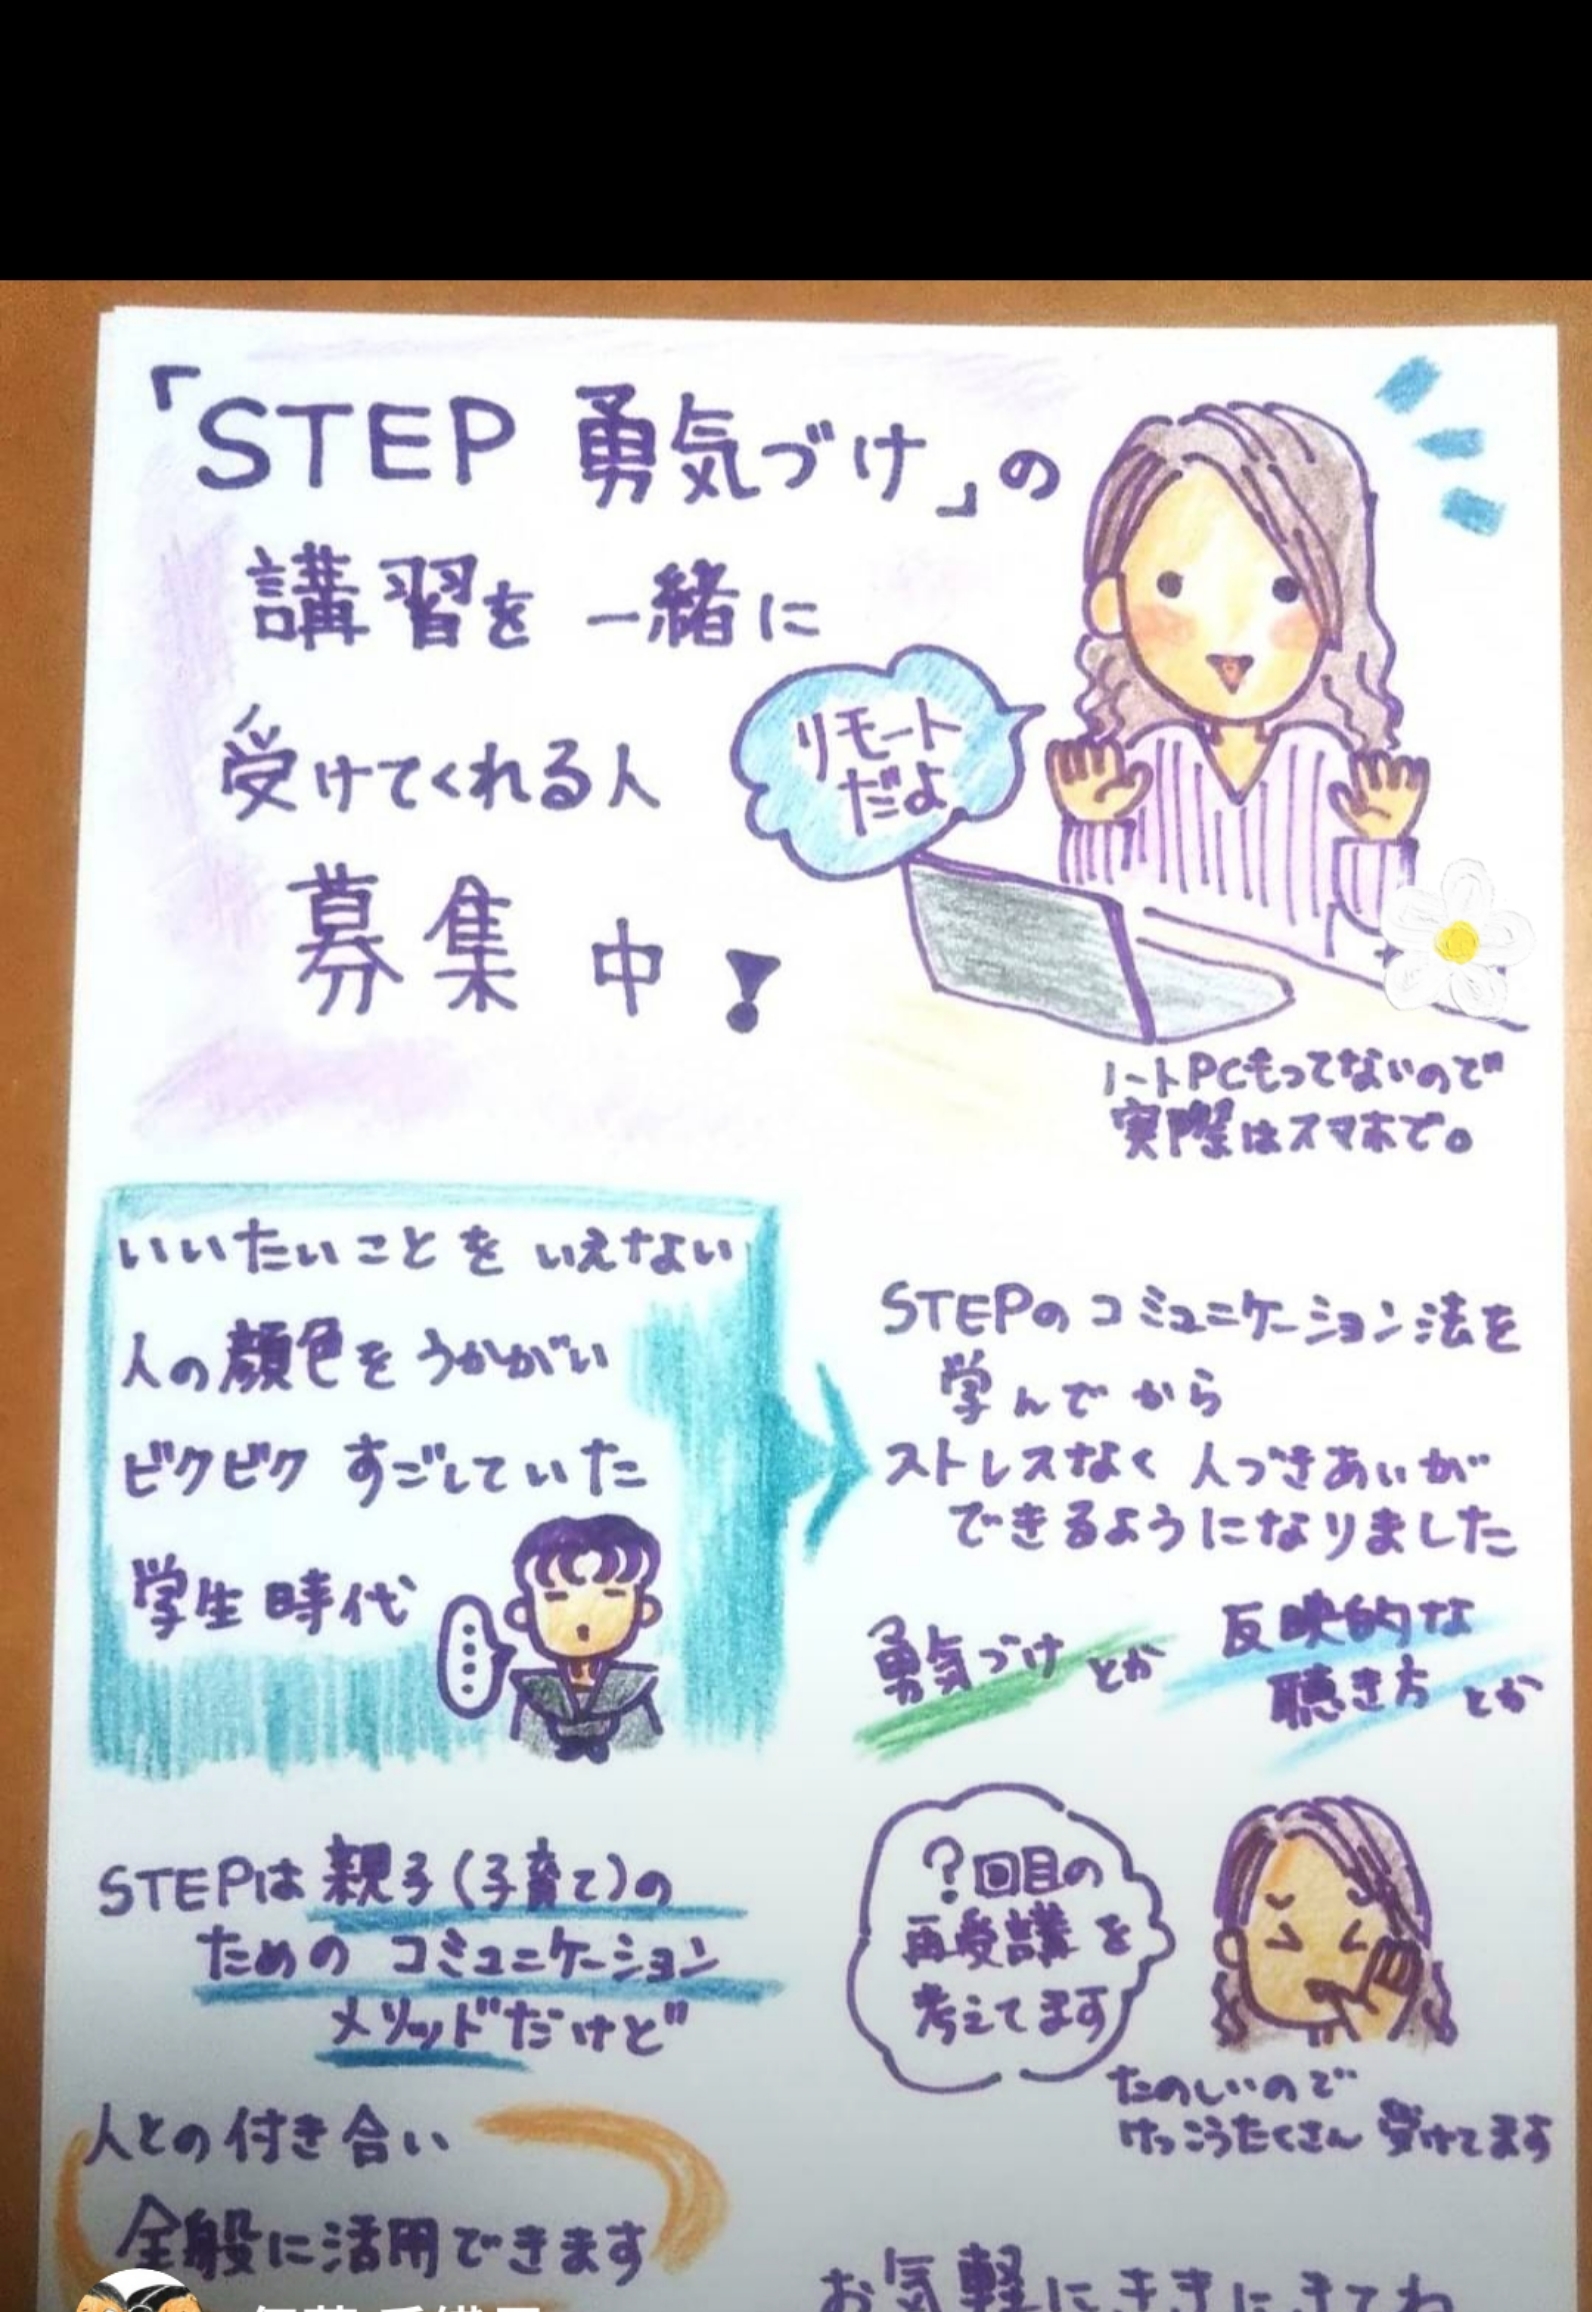 「STEP 勇気づけ」の
講習を 一緒に
受けてくれる人
募集中!
リモート
だよ
ノートPCもってないので
実際はスマホで。
いいたいことを いえない
人の顔色を うかがい
ビクビク すごしていた
学生時代
STEPの コミュニケーション法を
学んでから
ストレスなく 人づきあいが
できるようになりました
勇気づけ とか
反映的な
聴き方 とか
STEPは 親子(子育て)の
ための コミュニケーション
メソッドだけど
?回目の
再受講を
考えてます
たのしいので
けっこうたくさん 受けてます
人との付き合い
全般に活用できます
お気軽にききにきてね